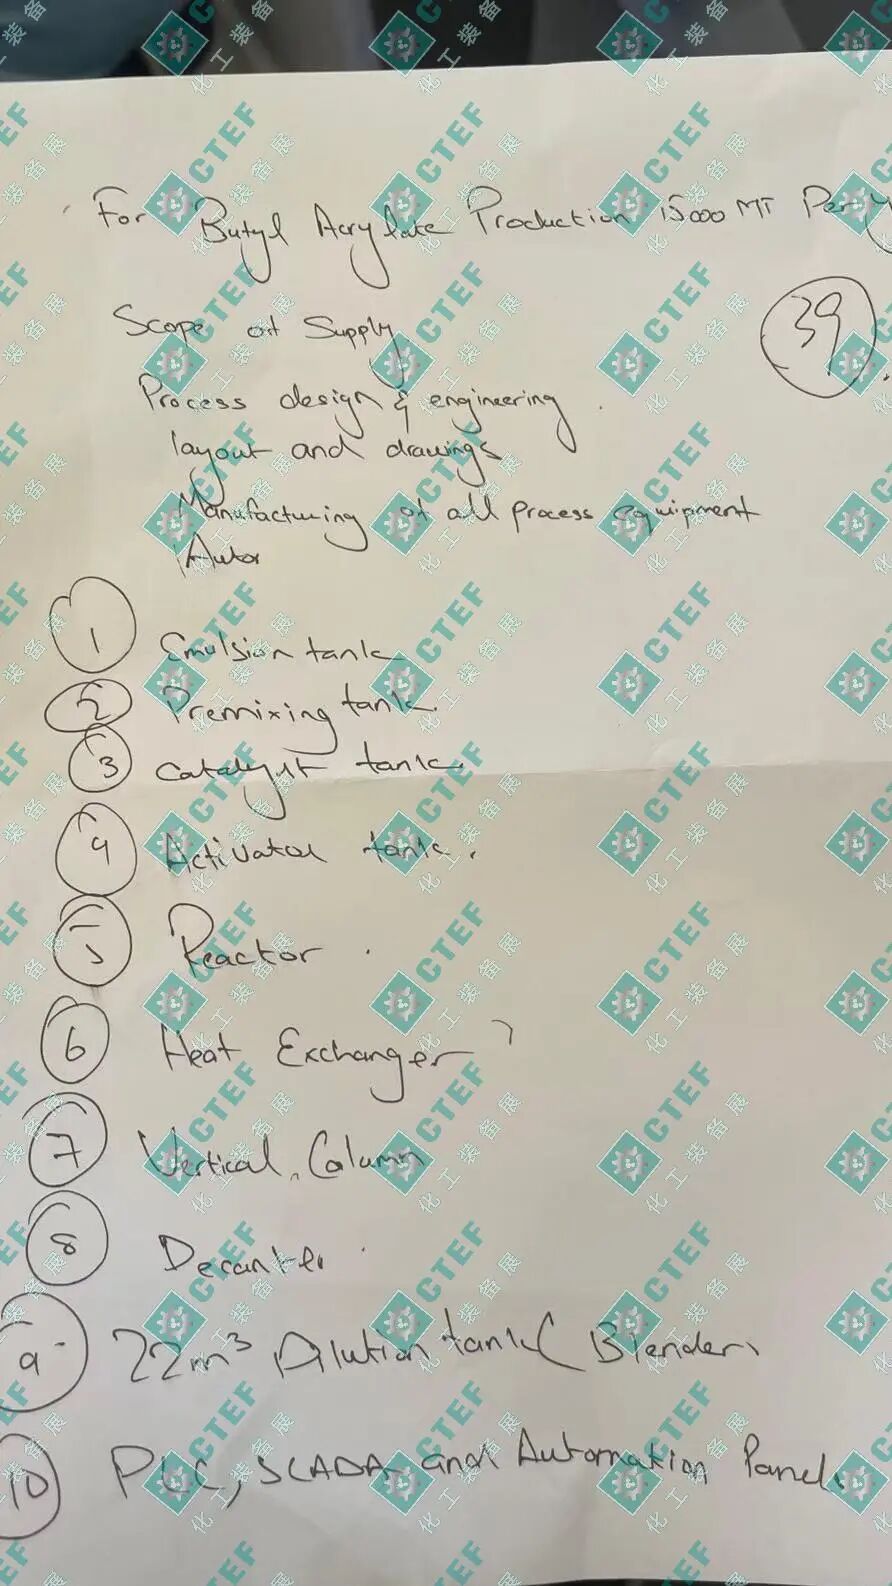 For Butyl Acrylate Production 15000 MT Per y
39
Scope of Supply
Process design & engineering
layout and drawings
Manufacturing of all process equipment
Auto
1 Emulsion tank
2 Premixing tank.
3 Catalyst tank.
4 Activator tank.
5 Reactor.
6 Heat Exchanger
7 Vertical Column
8 Decanter.
9 22m³ Dilution tank ( Blender)
10 PLC, SCADA and Automation Panel.
CTEF
化工装备展